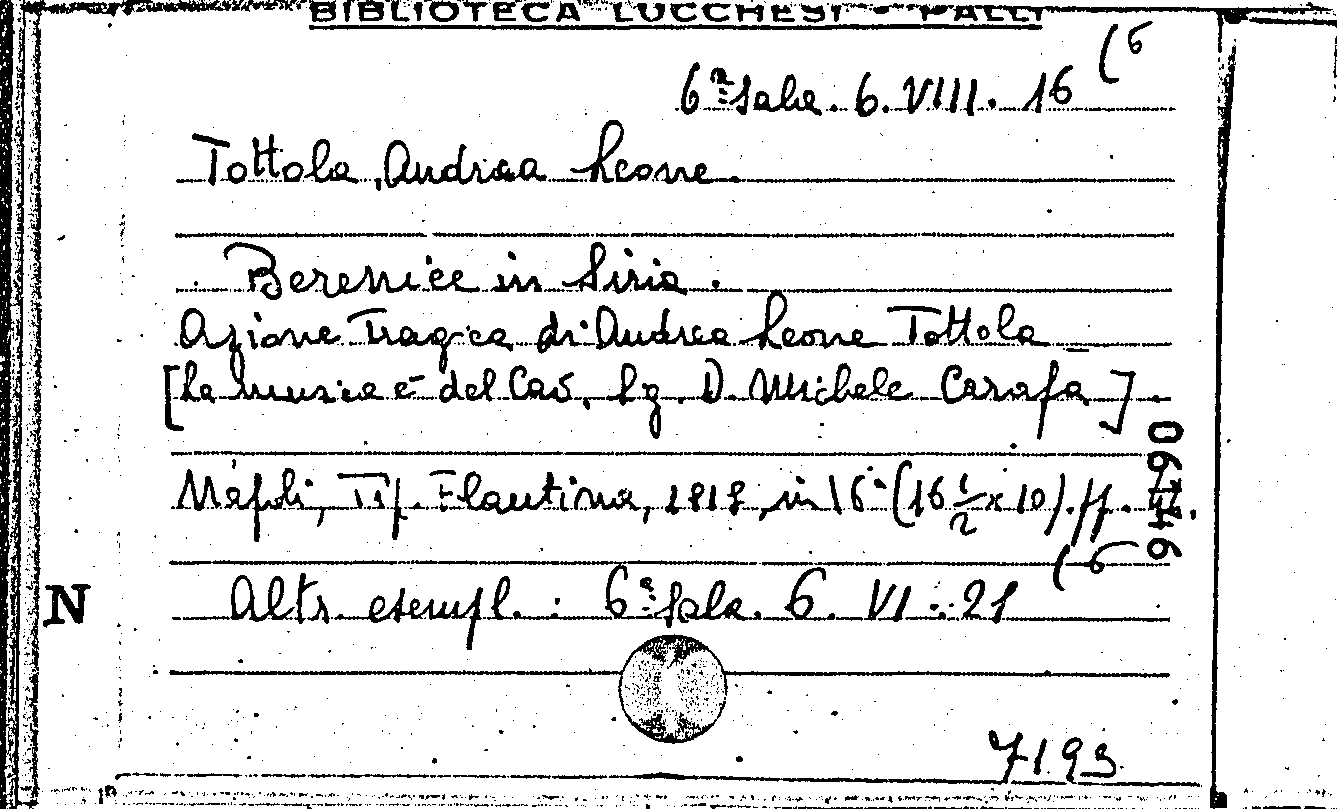 BIBLIOTECA LUCCHESI - PALLI
6ª Sala. 6. VIII. 16 (5
Tottola, Andrea Leone.
Berenice in Siria.
Azione tragica di Andrea Leone Tottola
[La musica è del Cav. Sg. D. Michele Carafa].
Napoli, Tip. Flautina, 1818, in 16° (16 1/2 x 10). pp.
(5
N Altr. esempl.: 6ª Sala. 6. VI. 21
7193